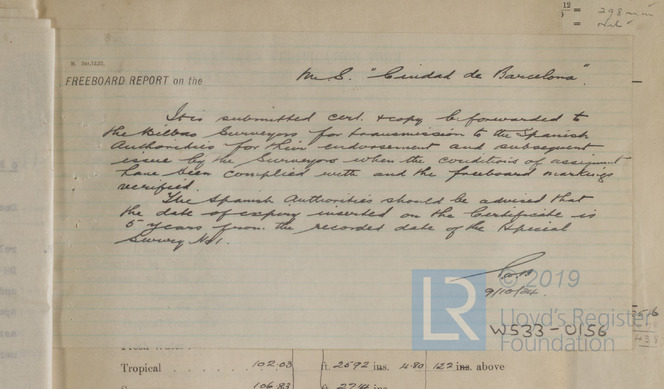 12 = 298
= Nil
FREEBOARD REPORT on the M S. "Ciudad de Barcelona".
It is submitted cert. & copy be forwarded to
the Bilbao Surveyors for transmission to the Spanish
Authorities for their endorsement and subsequent
issue by the Surveyors when the conditions of assignment
have been complied with and the freeboard markings
verified.
The Spanish Authorities should be advised that
the date of expiry inserted on the Certificate is
5 years from the recorded date of the Special
Survey No 1.
© 2019
LR
Lloyd's Register
Foundation
W533-0156
Tropical 102.03 ft. 2592 ins. 4.80 122 ins. above
106.83 ft. ins.